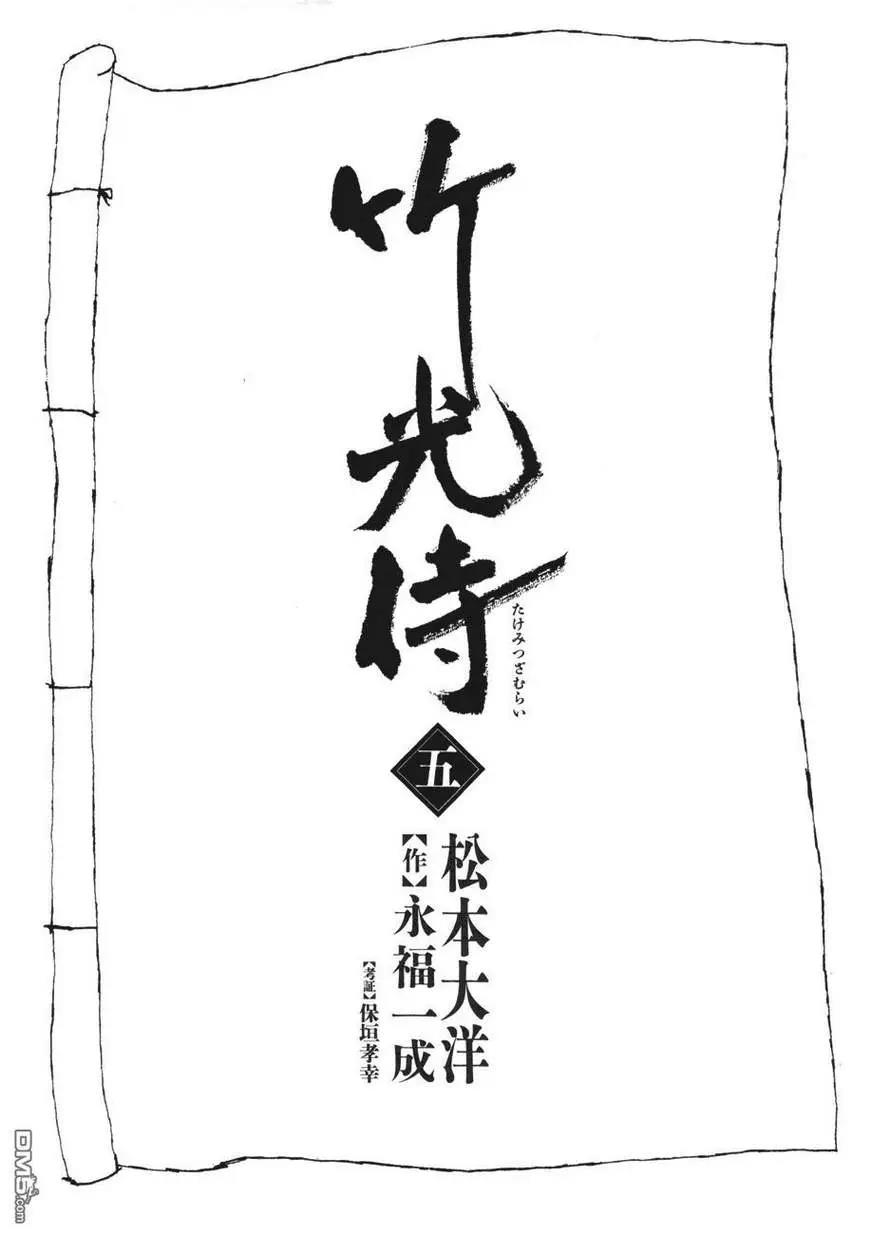 竹光侍
たけみつざむらい
五
松本大洋
【作】永福一成
【考証】保垣孝幸
DM5.com